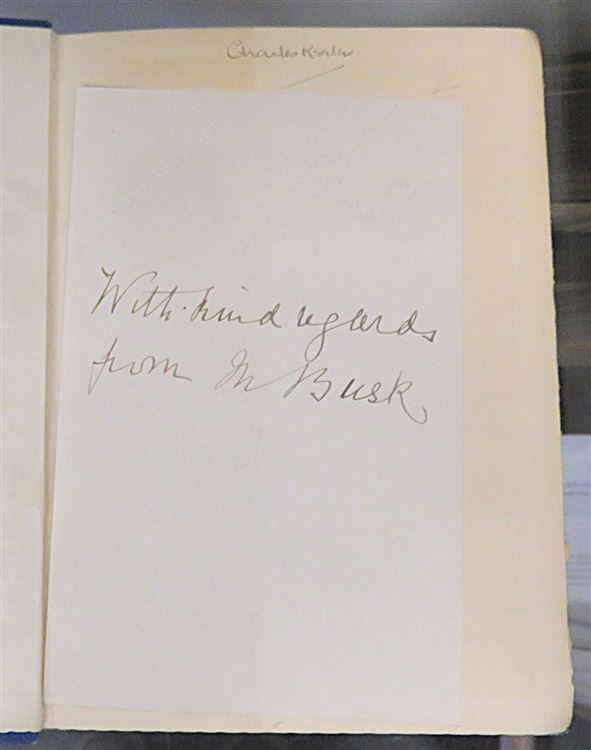 Charles
With kind regards
from M Busk